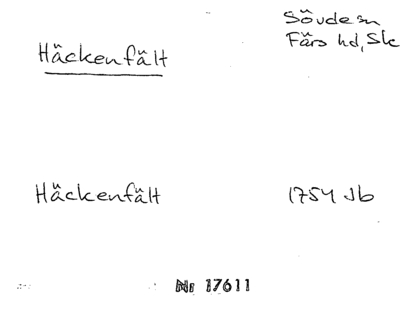 Häckenfält
Sövde sn
Färs hd, Sk
Häckenfält
1754 Jb
Nr 17611